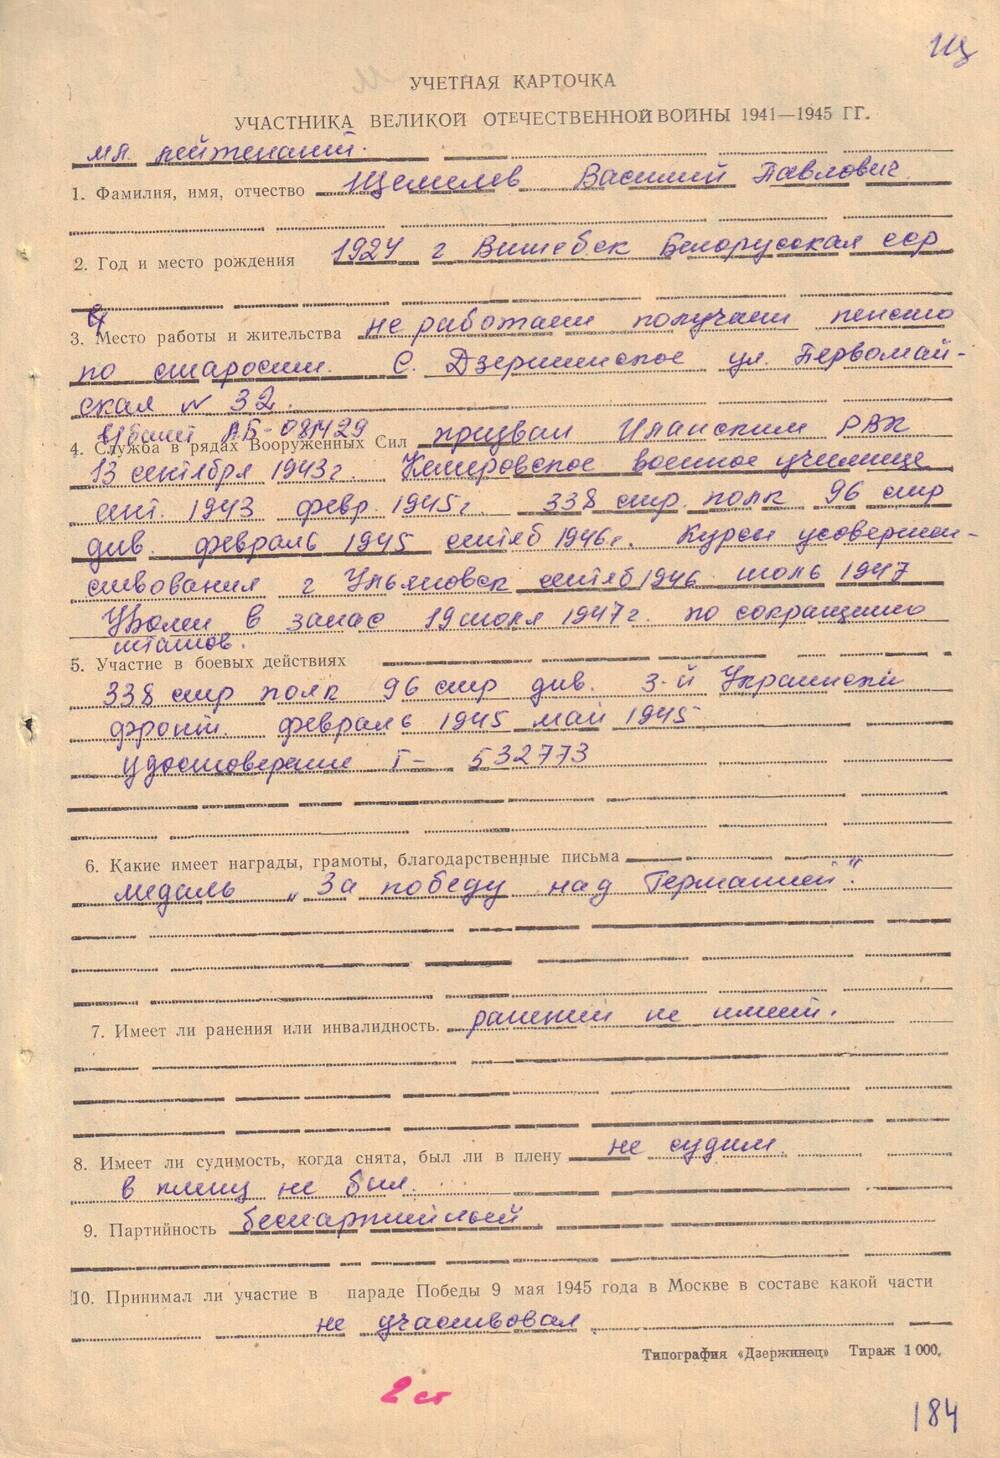 Щ
УЧЕТНАЯ КАРТОЧКА
УЧАСТНИКА ВЕЛИКОЙ ОТЕЧЕСТВЕННОЙ ВОЙНЫ 1941—1945 ГГ.
мл. лейтенант.
1. Фамилия, имя, отчество Щемелев Василий Павлович.
2. Год и место рождения 1924 г Витебск Белорусская сср
3. Место работы и жительства не работаю получаю пенсию
по старости. С. Дзержинское ул. Первомай-
ская № 32.
В/билет АБ-081429
4. Служба в рядах Вооруженных Сил призван Иланским РВК
13 сентября 1943г. Кемеровское военное училище
сент. 1943 февр. 1945г. 338 стр. полк 96 стр
див. февраль 1945 сентяб 1946г. Курсы усовершен-
ствования г Ульяновск сентяб 1946 июль 1947
Уволен в запас 19 июля 1947г. по сокращению
штатов.
5. Участие в боевых действиях
338 стр полк 96 стр див. 3-й Украинский
фронт. февраль 1945 май 1945
удостоверение Г- 532773
6. Какие имеет награды, грамоты, благодарственные письма
медаль „За победу над Германией".
7. Имеет ли ранения или инвалидность. ранений не имеет.
8. Имеет ли судимость, когда снята, был ли в плену не судим.
в плену не был.
9. Партийность беспартийный
10. Принимал ли участие в параде Победы 9 мая 1945 года в Москве в составе какой части
не участвовал
Типография «Дзержинец» Тираж 1 000.
2 ст
184